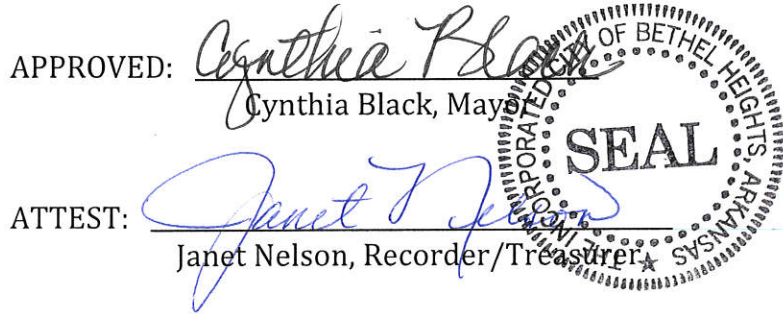 APPROVED: Cynthia Black
Cynthia Black, Mayor
ATTEST: Janet Nelson
Janet Nelson, Recorder/Treasurer
THE INCORPORATED CITY OF BETHEL HEIGHTS, ARKANSAS
SEAL